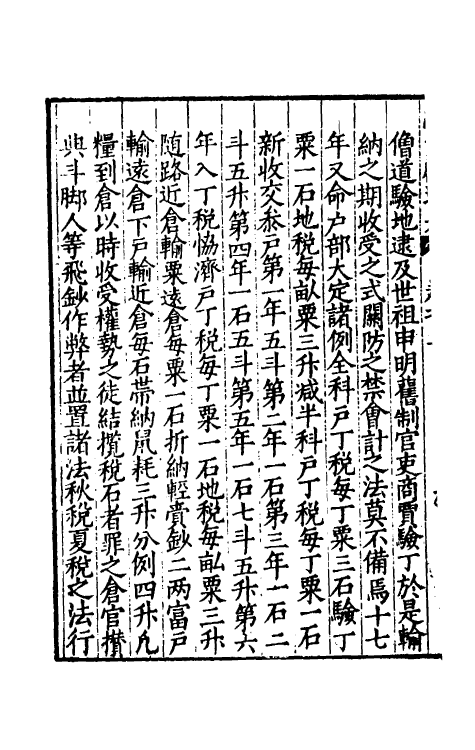 僧道驗地逮及世祖申明舊制官吏商賈驗丁於是輸
納之期收受之式關防之禁會計之法莫不備焉十七
年又命户部大定諸例全科戸丁稅每丁粟三石驗丁
粟一石地稅每畝粟三升减半科戸丁稅每丁粟一石
新收交叅戸第一年五斗第二年一石第三年一石二
斗五升第四年一石五斗第五年一石七斗五升第六
年入丁稅恊濟戸丁稅每丁粟一石地稅每畝粟三升
随路近倉輸粟遠倉每粟一石折納輕賫鈔二两富戸
輸遠倉下戸輸近倉每石帯納鼠耗三升分例四升凡
糧到倉以時收受權勢之徒結攬稅石者罪之倉官攅
典斗脚人等飛鈔作弊者並置諸法秋稅夏稅之法行